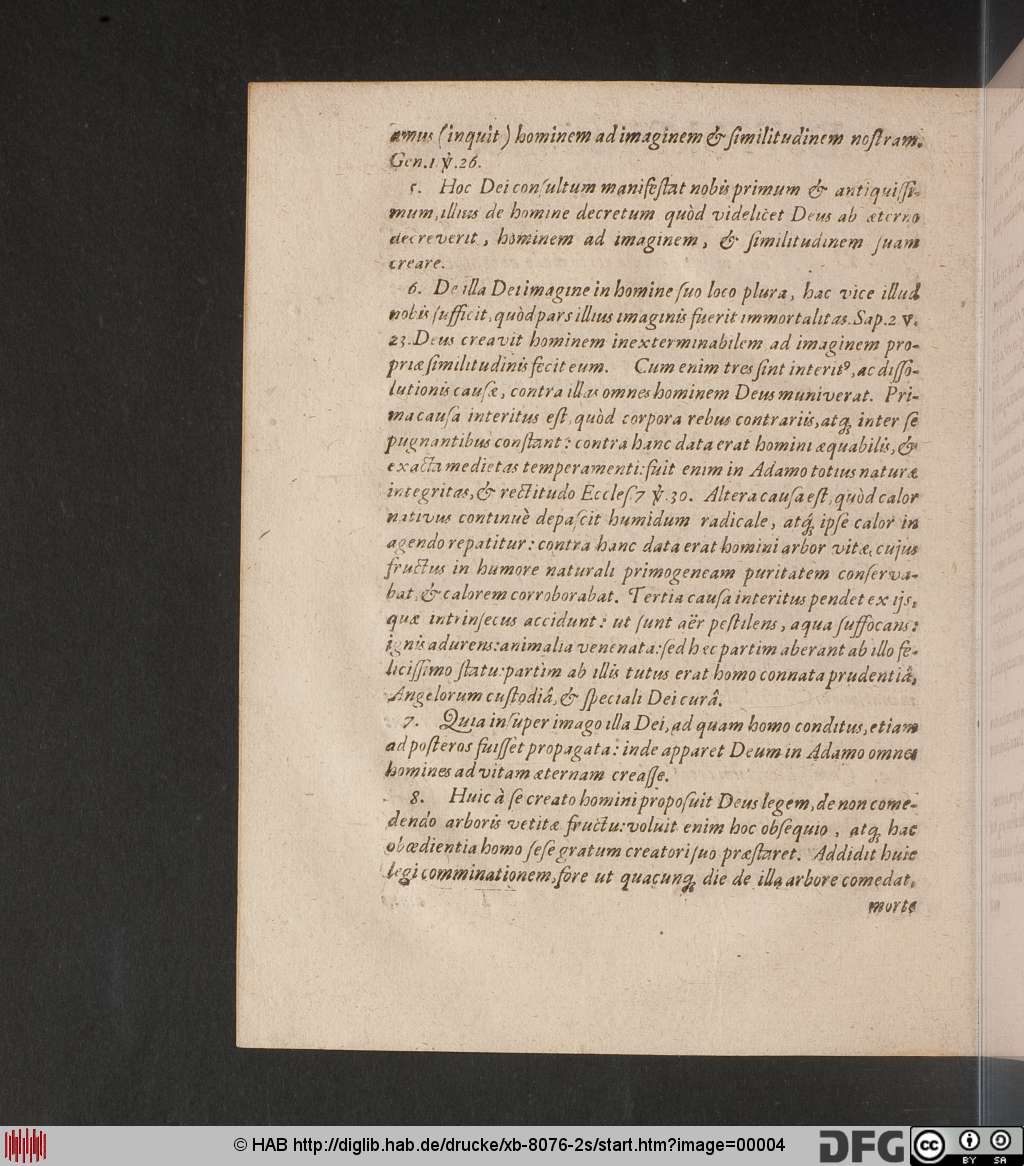 amus (inquit) hominem ad imaginem & ſimilitudinem noſtram.
Gen.1 ℣.26.
5. Hoc Dei conſultum manifeſtat nobis primum & antiquiſſi-
mum, illius de homine decretum quòd videlicet Deus ab æterno
decreverit, hominem ad imaginem, & ſimilitudinem ſuam
creare.
6. De illa Dei imagine in homine ſuo loco plura, hac vice illud
nobis ſufficit, quòd pars illius imaginis fuerit immortalitas. Sap.2 v.
23. Deus creavit hominem inexterminabilem ad imaginem pro-
priæ ſimilitudinis fecit eum. Cum enim tres ſint interitꝰ, ac diſſo-
lutionis cauſæ, contra illas omnes hominem Deus muniverat. Pri-
ma cauſa interitus eſt, quòd corpora rebus contrariis, atq; inter ſe
pugnantibus conſtant: contra hanc data erat homini æquabilis, &
exacta medietas temperamenti: fuit enim in Adamo totius naturæ
integritas, & rectitudo Eccleſ.7 ℣.30. Altera cauſa eſt, quòd calor
nativus continuè depaſcit humidum radicale, atq; ipſe calor in
agendo repatitur: contra hanc data erat homini arbor vitæ, cujus
fructus in humore naturali primogeneam puritatem conſerva-
bat, & calorem corroborabat. Tertia cauſa interitus pendet ex ijs,
quæ intrinſecus accidunt: ut ſunt aër peſtilens, aqua ſuffocans:
ignis adurens: animalia venenata: ſed hæc partim aberant ab illo fe-
liciſſimo ſtatu: partim ab illis tutus erat homo connata prudentiâ,
Angelorum cuſtodiâ, & ſpeciali Dei curâ.
7. Quia inſuper imago illa Dei, ad quam homo conditus, etiam
ad poſteros fuiſſet propagata: inde apparet Deum in Adamo omnes
homines ad vitam æternam creaſſe.
8. Huic à ſe creato homini propoſuit Deus legem, de non come-
dendo arboris vetitæ fructu: voluit enim hoc obſequio, atq; hac
obœdientia homo ſeſe gratum creatori ſuo præſtaret. Addidit huic
legi comminationem, fore ut quacunq; die de illa arbore comedat,
morte
© HAB http://diglib.hab.de/drucke/xb-8076-2s/start.htm?image=00004
DFG
cc BY SA